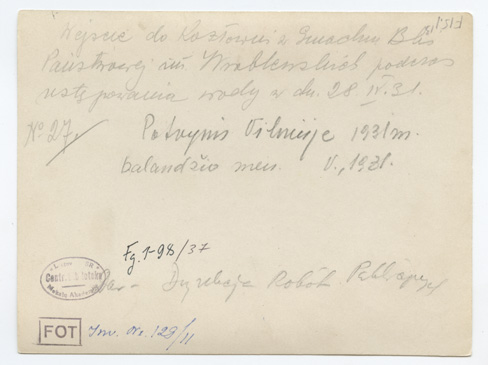 Wejście do Kotłowni w Gmachu Bib
Państwowej im Wróblewskich podczas
ustępowania wody w dn. 28 IV. 31.
№ 27.
Potvynis Vilniuje 1931 m.
balandžio mėn. V., 1931.
Fg. 1-98/37
Centr.
Mokslų Akademijos
Dar - Dyrekcja Robót Publicznych
FOT Inv. Nr. 129/11